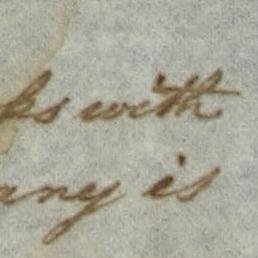 ks with
any is